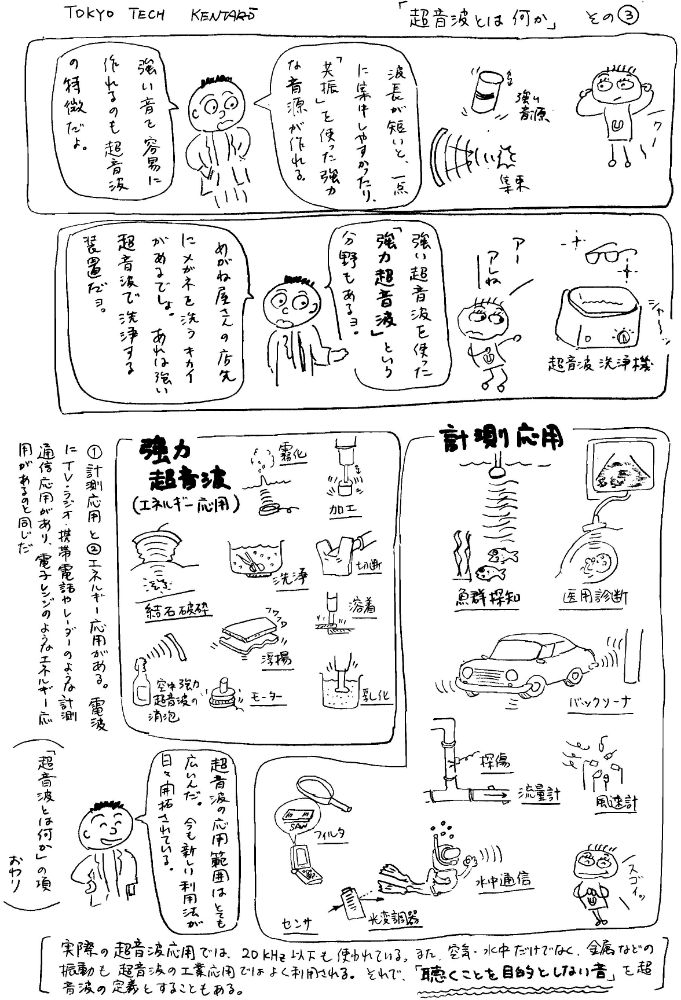 TOKYO TECH KENTARO
「超音波とは何か」 その③
波長が短いと、一点
に集中しやすかったり、
「共振」を使った強力
な音源が作れる。
強い音を容易に
作れるのも超音波
の特徴だよ。
強い
音源
集束
強い超音波を使った
「強力超音波」という
分野もあるヨ。
めがね屋さんの店先
にメガネを洗うキカイ
があるでしょ。あれは強い
超音波で洗浄する
装置だヨ。
アー
アレね
シャー
超音波洗浄機
計測応用
魚群探知
医用診断
バックソーナ
探傷
流量計
風速計
フィルタ
SAW
センサ
光変調器
水中通信
スゴイッ
強力
超音波
(エネルギー応用)
霧化
加工
結石破砕
洗浄
切断
フワフワ
浮揚
溶着
空中強力
超音波の
消泡
モーター
乳化
①計測応用と②エネルギー応用がある。電波
にTV・ラジオ・携帯電話やレーダーのような計測
通信応用があり、電子レンジのようなエネルギー応
用があるのと同じだ
超音波の応用範囲はとても
広いんだ。今も新しい利用法が
日々開拓されている。
(「超音波とは何か」の項
おわり)
実際の超音波応用では、20KHz以下も使われている。また、空気・水中だけでなく、金属などの
振動も超音波の工業応用ではよく利用される。それで、「聴くことを目的としない音」を超
音波の定義とすることもある。